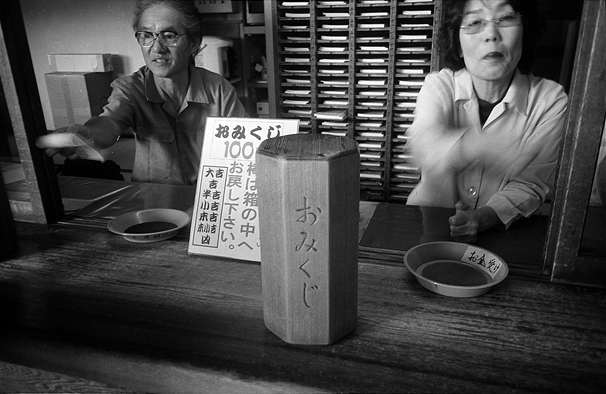 おみくじ
100
棒は箱の中へ
お戻し下さい。
吉吉吉吉吉
大吉半小末末小凶
おみくじ
お金受け